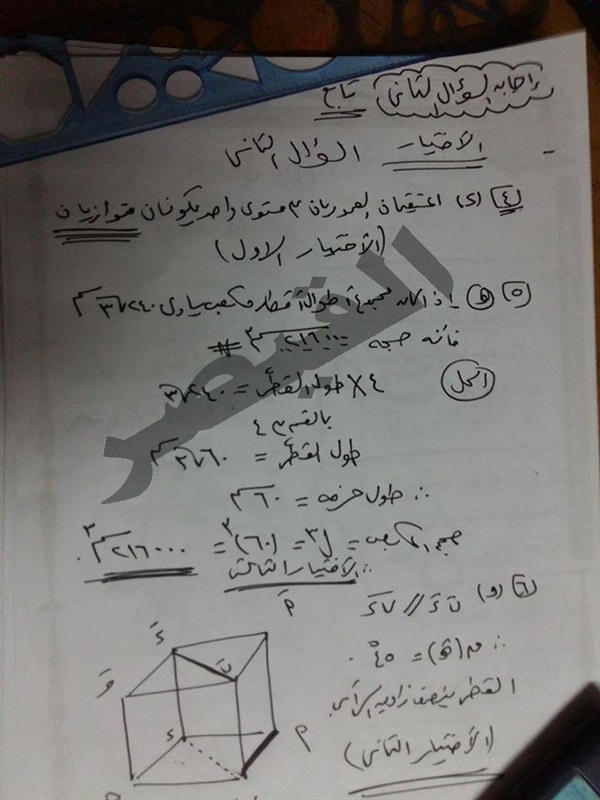 إجابة السؤال الثانى تابع
الاختيار السؤال الثانى
٤ (د) المستقيمان العموديان على مستوى واحد يكونان متوازيان
(الاختيار الأول)
٥ (هـ) إذا كان مجموع أطوال أقطار مكعب يساوى ٢٤٠√٣ سم
فأنه حجمه = ٢١٦٠٠٠ سم٣
الحل
٤ × طول القطر = ٢٤٠√٣
بالقسمة ٤
طول القطر = ٦٠√٣ سم
∴ طول حرفه = ٦٠ سم
حجم المكعب = ل٣ = (٦٠)٣ = ٢١٦٠٠٠ سم٣
∴ الاختيار الثالث
٦ (و)
= ٤٥°
القطر ينصف زاوية الرأس
(الاختيار الثانى)
القيصر